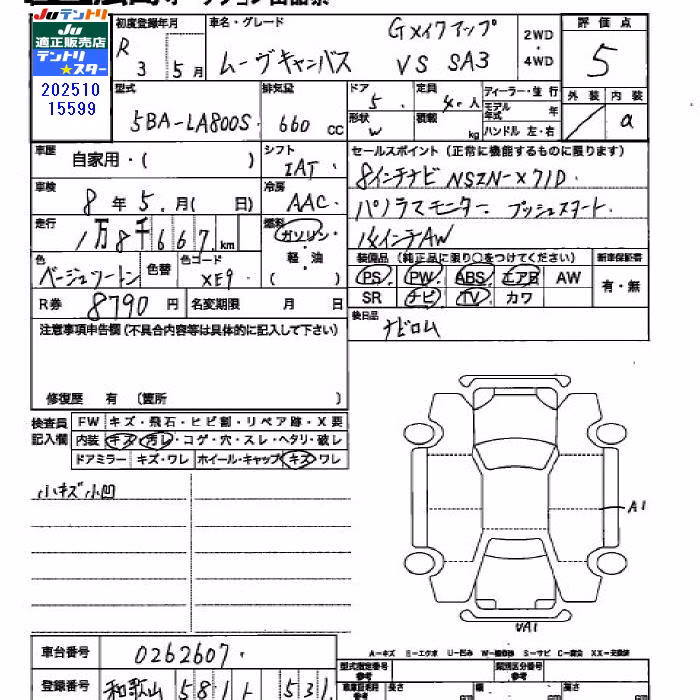 JUテントリ
JU
適正販売店
テントリ
★スター
202510
15599
初度登録年月
R 3 年 5 月
車名・グレード
Gメイクアップ
ムーヴキャンバス VS SA3
2WD
・
4WD
評価点
5
外装 内装
a
型式
5BA-LA800S
排気量
660 CC
ドア
5
定員
4 人
ディーラー・並行
モデル年式 年
形状
W
積載 kg
ハンドル 左・右
車歴
自家用・( )
シフト
IAT
セールスポイント (正常に機能するものに限ります)
8インチナビ NSZN-X71D.
パノラマモニター プッシュスタート.
14インチAW
車検
8 年 5 月 ( 日)
冷房
AAC
走行
1万8千667 km
燃料
ガソリン・
軽・油
( )
色
ベージュツートン
色替
色コード
XE9
装備品 (純正品に限り○をつけてください)
新車保証書
PS PW ABS エアB AW
SR ナビ TV カワ
有・無
R券 8790 円
名変期限 月 日
後日品
ナビロム
注意事項申告欄 (不具合内容等は具体的に記入して下さい)
修復歴 有 〔箇所 〕
検査員
記入欄
FW キズ・飛石・ヒビ割・リペア跡・X要
内装 キズ・汚レ・コゲ・穴・スレ・ヘタリ・破レ
ドアミラー キズ・ワレ ホイール・キャップ キズ・ワレ
小キズ小凹
A1
UA1
車台番号 0262607
A-キズ E-エクボ U-凹み W-補修跡 S-サビ C-腐食 XX-交換済
型式指定番号
参考
類別区分番号
参考
登録番号 和歌山 581 ト 531
長さ cm 幅 cm 高さ cm